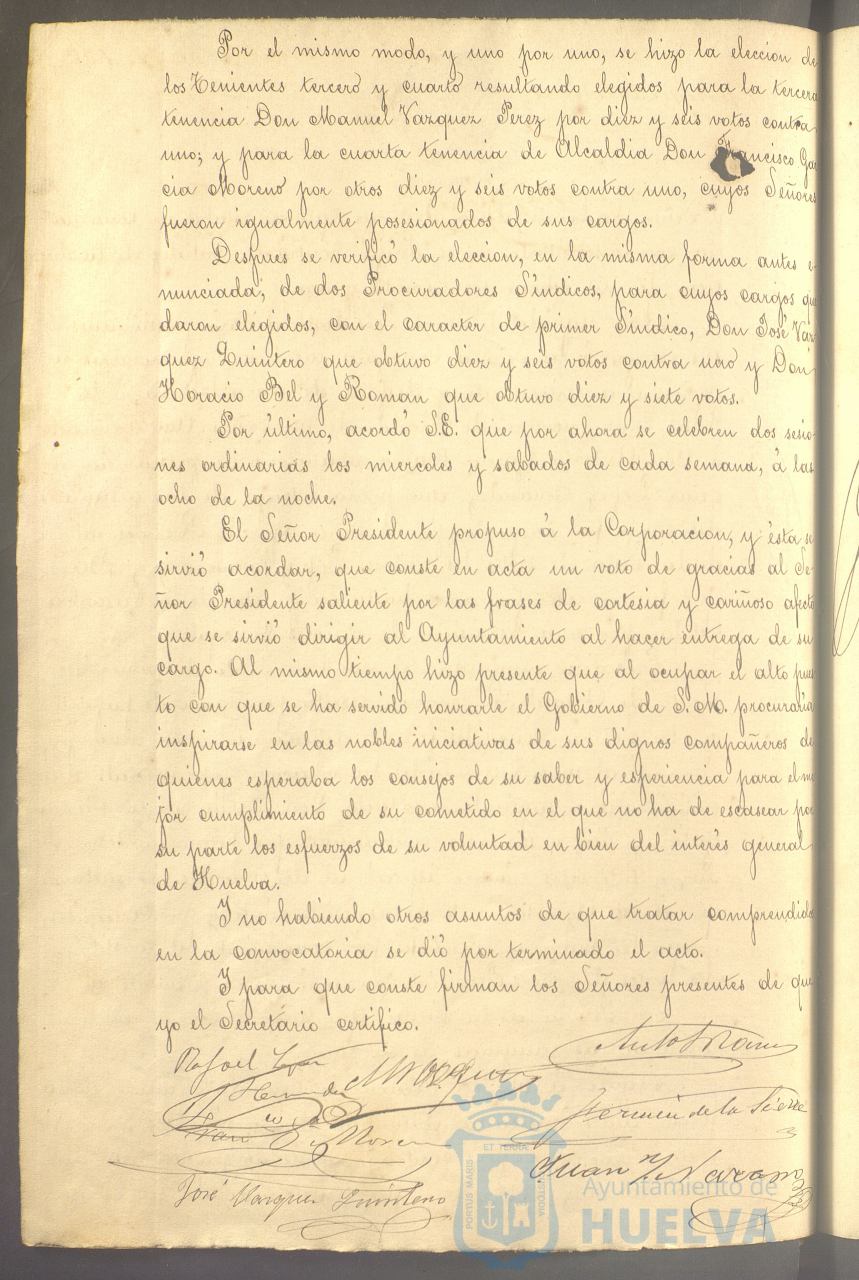 Por el mismo modo, y uno por uno, se hizo la eleccion de
los Tenientes tercero y cuarto resultando elegidos para la tercera
tenencia Don Manuel Vazquez Perez por diez y seis votos contra
uno; y para la cuarta tenencia de Alcaldia Don Francisco Gar
cia Moreno por otros diez y seis votos contra uno, cuyos Señores
fueron igualmente posesionados de sus cargos.
Despues se verificó la eleccion, en la misma forma antes e-
nunciada, de dos Procuradores Síndicos, para cuyos cargos que
daron elegidos, con el caracter de primer Síndico, Don José Vaz
quez Quintero que obtuvo diez y seis votos contra uno y Don
Horacio Bel y Roman que obtuvo diez y siete votos.
Por último, acordó S.E. que por ahora se celebren dos sesio-
nes ordinarias los miercoles y sabados de cada semana, á las
ocho de la noche.
El Señor Presidente propuso á la Corporacion, y ésta se
sirvió acordar, que conste en acta un voto de gracias al Se-
ñor Presidente saliente por las frases de cortesia y cariñoso afecto
que se sirvió dirigir al Ayuntamiento al hacer entrega de su
cargo. Al mismo tiempo hizo presente que al ocupar el alto pues
to con que se ha servido honrarle el Gobierno de S. M. procuraria
inspirarse en las nobles iniciativas de sus dignos compañeros de
quienes esperaba los consejos de su saber y esperiencia para el me
jor cumplimiento de su cometido en el que no ha de escasear por
su parte los esfuerzos de su voluntad en bien del interés general
de Huelva.
I no habiendo otros asuntos de que tratar comprendidos
en la convocatoria se dió por terminado el acto.
I para que conste firman los Señores presentes de que
yo el Secretario certifico.
Rafael Lopez
Hernandez
M Vazquez
de la Sierra
Juan
José Vazquez Quintero
PORTUS MARIS ET TERRAE CUSTODIA
Ayuntamiento de
HUELVA